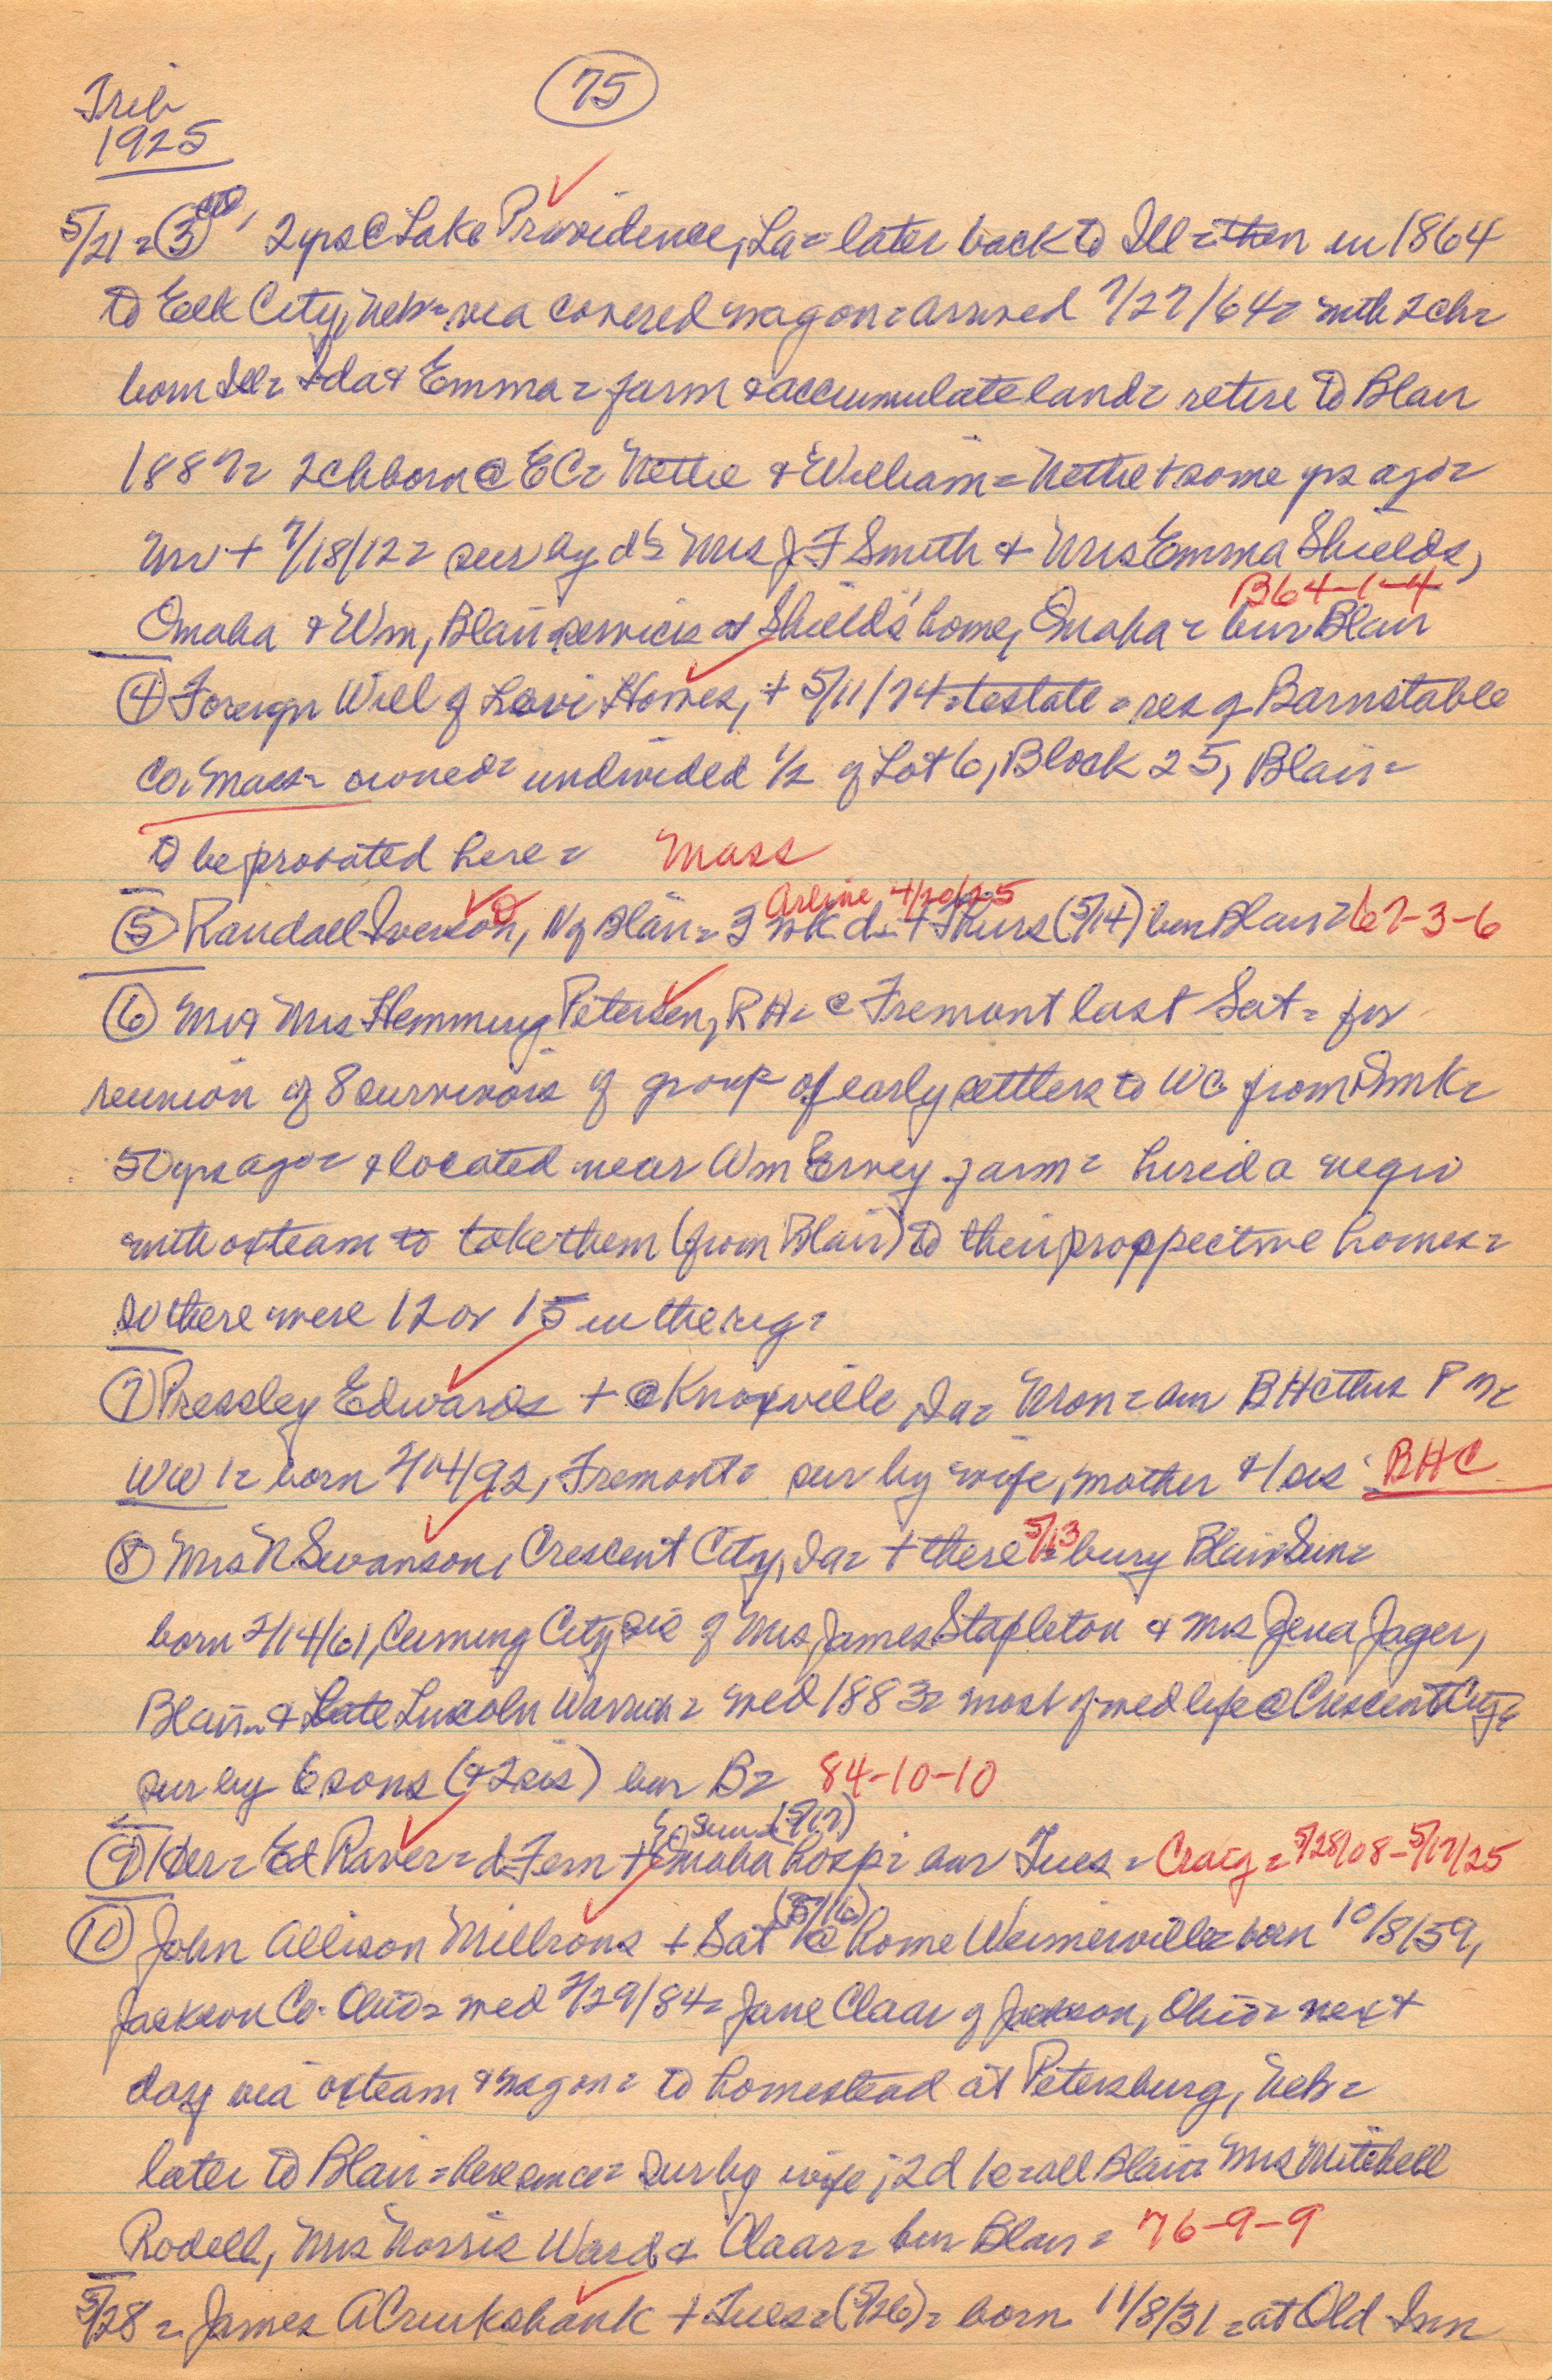 Trib
1925
75
5/21 = ③ctd, 2 yrs @ Lake Providence, La = later back to Ill = then in 1864
to Elk City, Neb = via covered wagon = arrived 7/27/64 = with 2 ch =
born Ill = Ida & Emma = farm & accumulate land = retire to Blair
1887 = 2 ch born @ EC = Nettie & William = Nettie + some yrs ago =
Mr + 7/18/12 = sur by ds Mrs J F Smith & Mrs Emma Shields,
B64-1-4
Omaha & Wm, Blair = services at Shields' home, Omaha = bur Blair
④ Foreign Will of Levi Howes, + 5/11/24 = testate = res of Barnstable
Co, Mass = owned = undivided 1/2 of Lot 6, Block 25, Blair =
to be probated here = Mass
Arline 4/20/25
⑤ Randall Iverson, N of Blair = 3 wk d = + Thurs (5/14) bur Blair = 67-3-6
⑥ Mr & Mrs Hemming Petersen, RH = @ Fremont last Sat = for
reunion of 8 survivors of group of early settlers to WC from Dmk =
50 yrs ago = & located near Wm Ervey farm = hired a negro
with ox team to take them (from Blair) to their prospective homes =
so there were 12 or 15 in the rig =
⑦ Pressley Edwards + @ Knoxville, Ia = Mon = bur BHC thus P M =
WW 1 = born 2/04/92, Fremont = sur by wife, mother & 1 sis BHC
⑧ Mrs N Swanson, Crescent City, Ia = + there 5/13 = bury Blair Sun =
born 2/14/61, Cuming City sis of Mrs James Stapleton & Mrs Jena Jager,
Blair & Late Lincoln Warrick = med 1883 = most of med life @ Crescent City =
sur by 6 sons (& 2 sis) bur B = 84-10-10
Sun (5/17)
⑨ Her = Ed Raver = d Fern + @ Omaha hosp = bur Tues = Craig = 5/28/08 - 5/17/25
(5/16)
⑩ John Allison Millions + Sat @ home Weimerville = born 10/8/59,
Jackson Co. Ohio = med 2/29/84 = Jane Claar of Jackson, Ohio = next
day via ox team & wagon = to homestead at Petersburg, Neb =
later to Blair = here since = sur by wife; 2d 1s = all Blair = Mrs Mitchell
Rodell, Mrs Norris Ward & Claar = bur Blair = 76-9-9
5/28 = James A Cruikshank + Tues = (5/26) = born 11/8/31 = at Old Inn